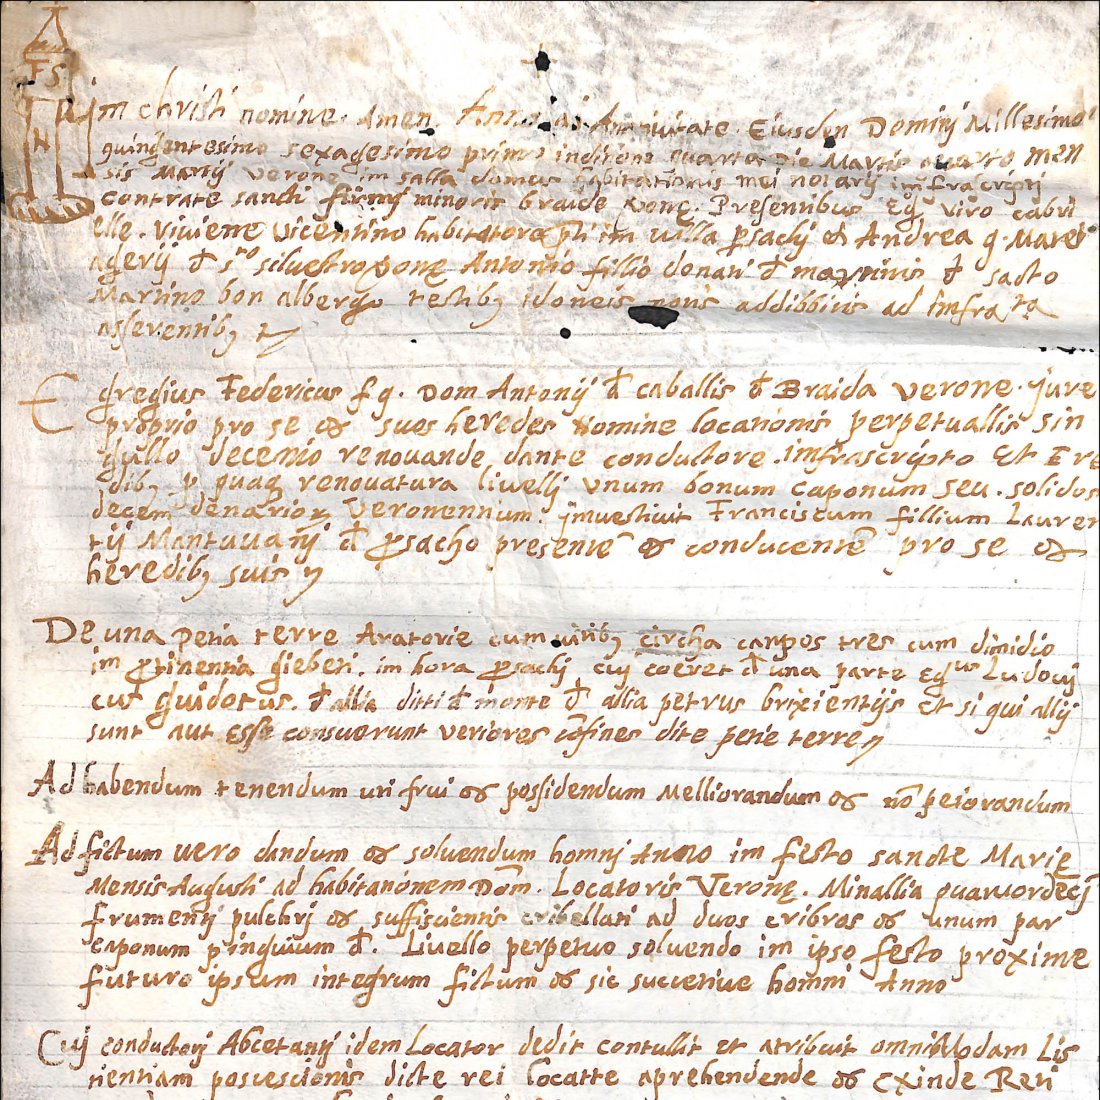 FS
N
im christi nomine. Amen. Anno a Nativitate. Eiusdem Dominj Millesimo
quingentesimo sexagesimo primo inditione quarta die Martis quarto men
sis Martij verone im salla domus habitationis mei notarij imfrascriptj
contrate sancti firmj minoris braide veronę. Presentibus Eg viro cabri
elle. viviene vicentino habitatore im villa psachj et Andrea q. Marci
Antonio fillio donati đ đ sacto
Martino bon albergo testibȝ idoneis notis addibbitis ad imfrata
asserentibȝ
Egregius Federicus f q. Dom Antonij đ caballis đ Braida verone. jure
proprio pro se et suos heredes nomine locationis perpetuallis sin
gullo decenio renovande dante conductore imfrascripto Et Ere
dibȝ p quaq renovatura livellj unum bonum caponum seu. solidos
decem denarioꝝ Veronensium. jmvestivit Franciscum fillium Lauren
tij Mantuvanj đ psacho presentē et conducentē pro se et
heredibȝ suis
De una petia terre Aratorie cum viribȝ circha campos tres cum dimidio
im ptinentia gieberi. im hora psachj cuj coeret đ una parte Egus Ludovj
cus guidotus. đ allia ditti đ monte đ allia petrus brixientijs Et si qui allij
sunt aut esse consuerunt veriores cōfines dite petie terre
Ad habendum tenendum uti frui et possidendum Melliorandum et nō peiorandum
Ad fictum vero dandum et solvendum homnj Anno im festo sancte Marie
Mensis Augusti ad habitationem Dom̄. Locatoris Veronę. Minallia quatuordecj
frumentj pulchrj et suffiscientis cribellati ad duos cribros et unum par
caponum pinguium đ. Livello perpetuo solvendo im ipso festo proxime
futuro ipsum integrum fictum et sic succetive homni Anno
Cuj conductorj Abcetantj idem Locator dedit contullit et atribuit omniModam Lis
tientiam poscescionis dicte rei locatte aprehendende et exinde Reti